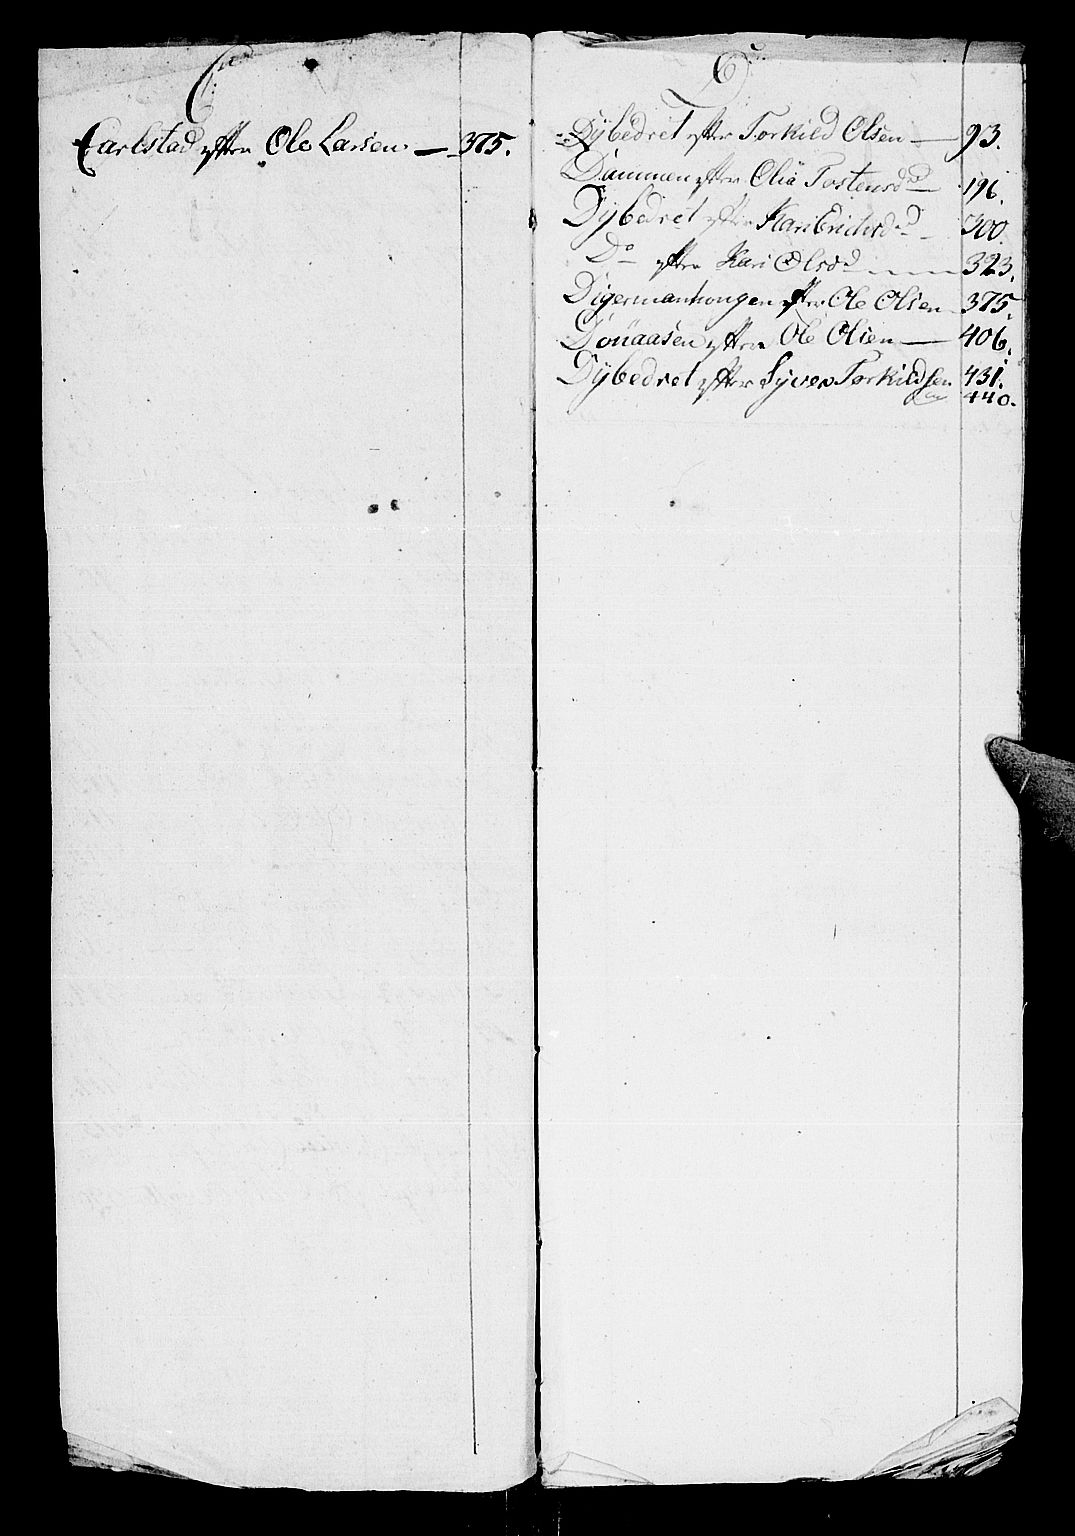 C
Carlstad efter Ole Larsen — 375.
D
Dybedret efter Torkild Olsen — 93.
Dammen efter Olia Tostensd — 196.
Dybedret efter Kari Erichsd — 300.
Do efter Kari Olsd — 323.
Digermanhougen efter Ole Olsen — 375.
efter Ole Olsen — 406.
Dybedret efter Syver Torkildsen 431.
440.